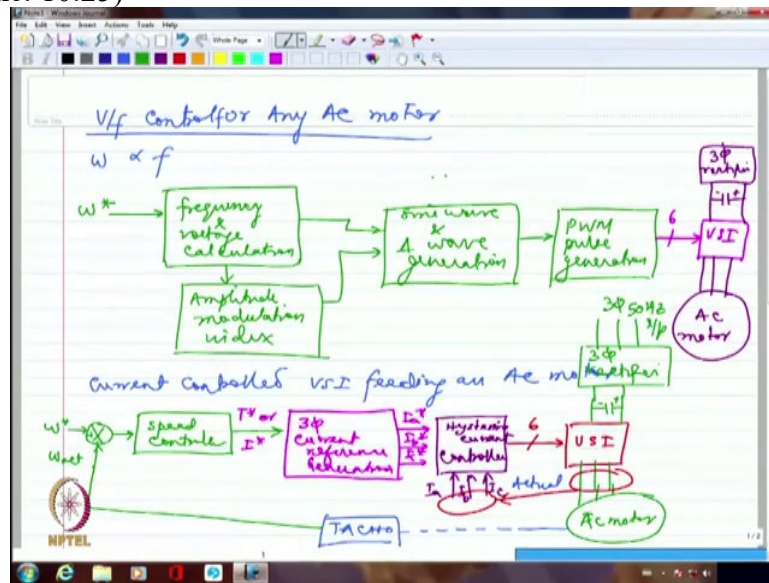 Note1 - Windows Journal
File Edit View Insert Actions Tools Help
Whole Page
B I
V/f Control for Any AC motor
ω ∝ f
ω*
frequency
&
voltage
calculation
Amplitude
modulation
index
sine wave
&
Δ wave
generation
PWM
pulse
generation
6
3Φ
VSI
AC
motor
3Φ 50Hz
i/p
3Φ
Current Controlled VSI feeding an AC motor
ω*
ωact
speed
T* or
I*
3Φ
current
reference
generation
Ia*
Current
Controller
Ia Ib Ic
Actual
6
VSI
AC motor
TACHO
NPTEL
1/2